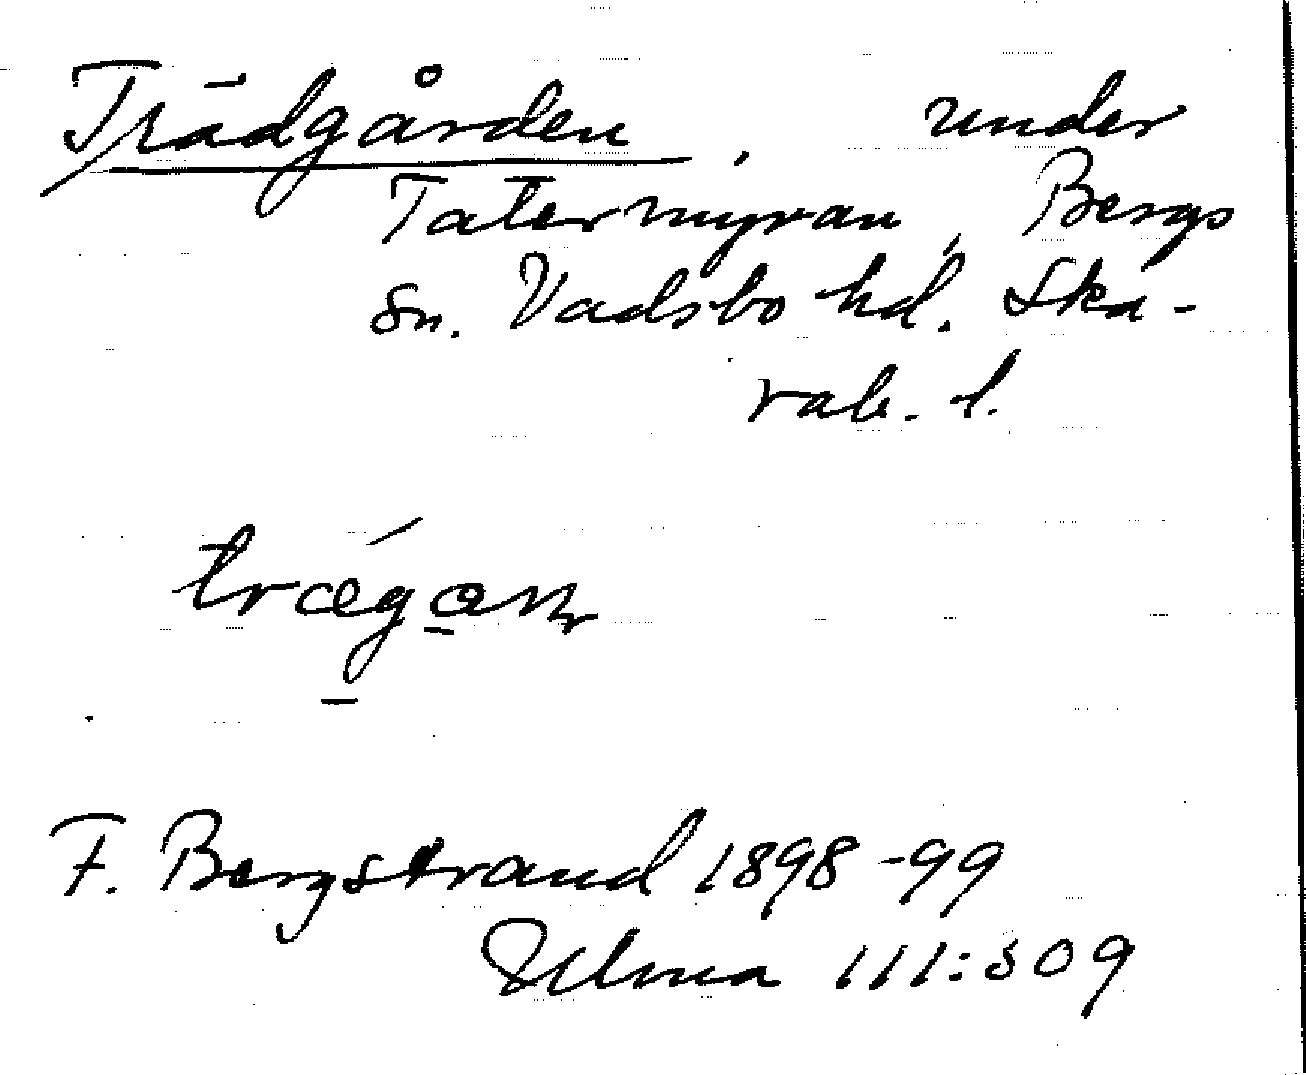 Trädgården, under
Tatermyran, Bergs
sn. Vadsbo hd. Ska-
rab. l.
trǽgaɳ
F. Bergstrand 1898-99
Ulma 111:509